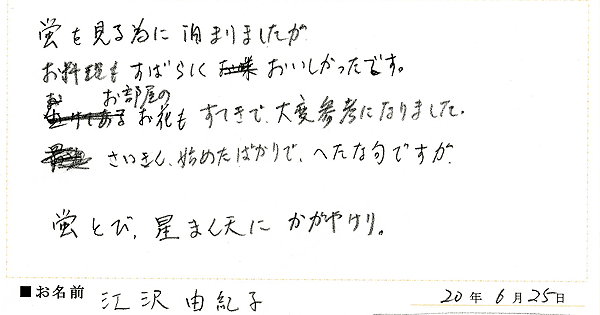 蛍を見る為に泊まりましたが
お料理もすばらしくおいしかったです。
お部屋の
お花もすてきで、大変参考になりました。
さいきん、始めたばかりで、へたな句ですが、
蛍とび、星まん天にかがやけり。
■お名前 江沢由紀子 20年6月25日